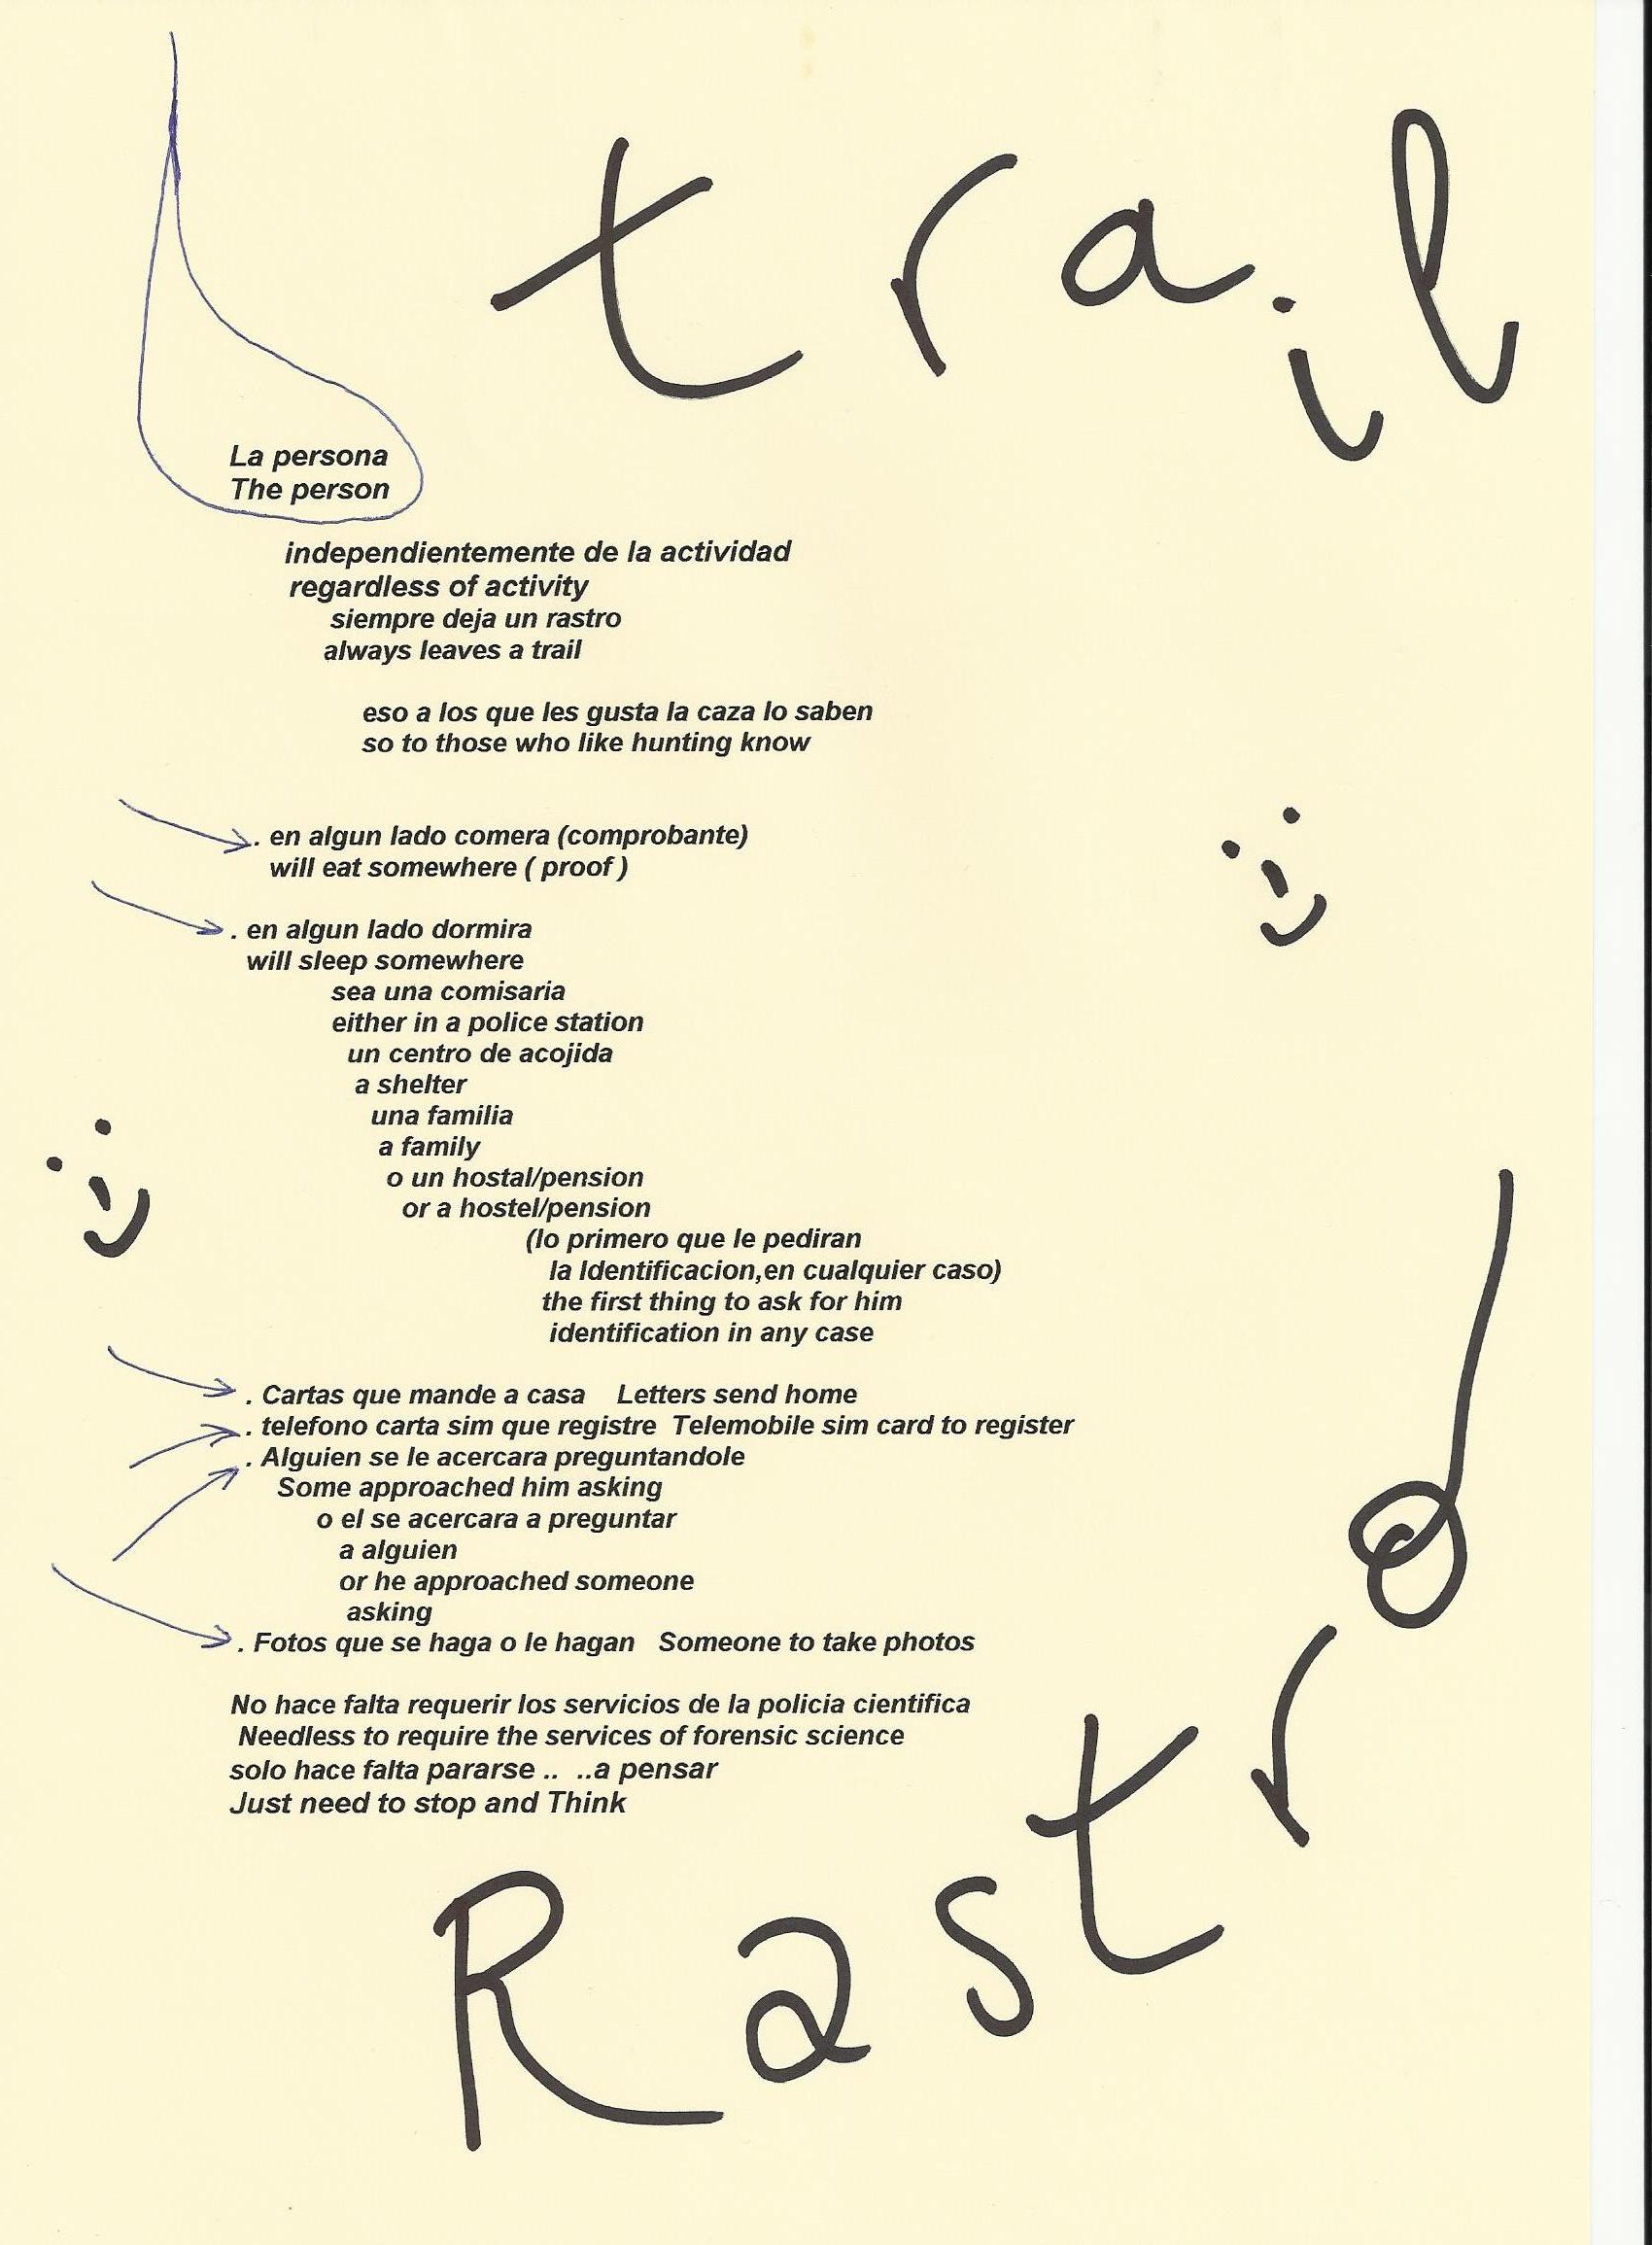 trail
La persona
The person
independientemente de la actividad
regardless of activity
siempre deja un rastro
always leaves a trail
eso a los que les gusta la caza lo saben
so to those who like hunting know
. en algun lado comera (comprobante)
will eat somewhere ( proof )
. en algun lado dormira
will sleep somewhere
sea una comisaria
either in a police station
un centro de acojida
a shelter
una familia
a family
o un hostal/pension
or a hostel/pension
(lo primero que le pediran
la Identificacion,en cualquier caso)
the first thing to ask for him
identification in any case
. Cartas que mande a casa    Letters send home
. telefono carta sim que registre  Telemobile sim card to register
. Alguien se le acercara preguntandole
Some approached him asking
o el se acercara a preguntar
a alguien
or he approached someone
asking
. Fotos que se haga o le hagan   Someone to take photos
No hace falta requerir los servicios de la policia cientifica
Needless to require the services of forensic science
solo hace falta pararse ..  ..a pensar
Just need to stop and Think
Rastro